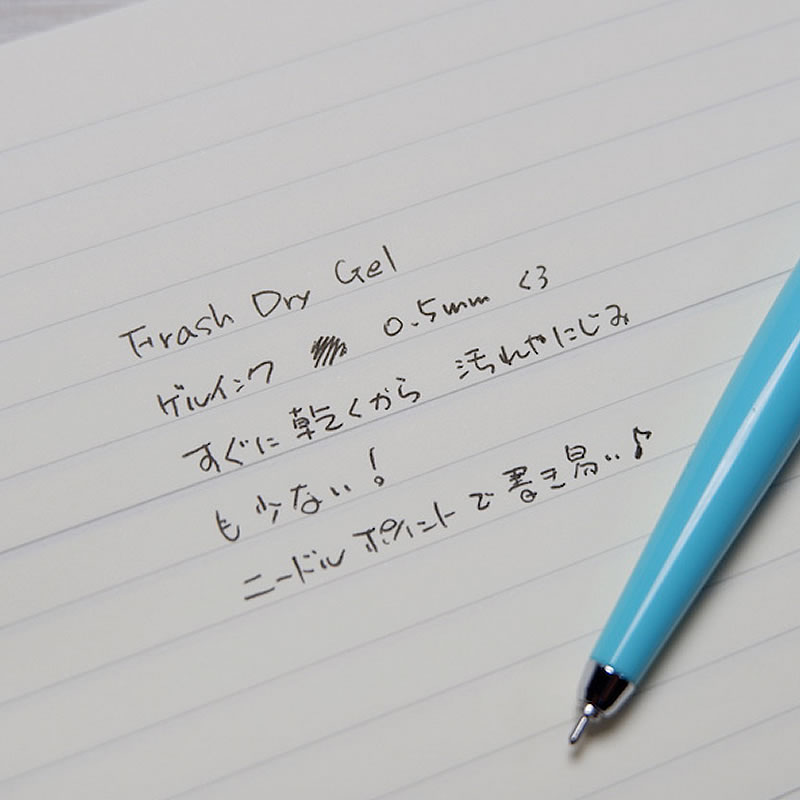 Firash Dry Gel
ゲルインク 0.5mm <3
すぐに乾くから 汚れやにじみ
も少ない!
ニードルポイントで書き易い♪